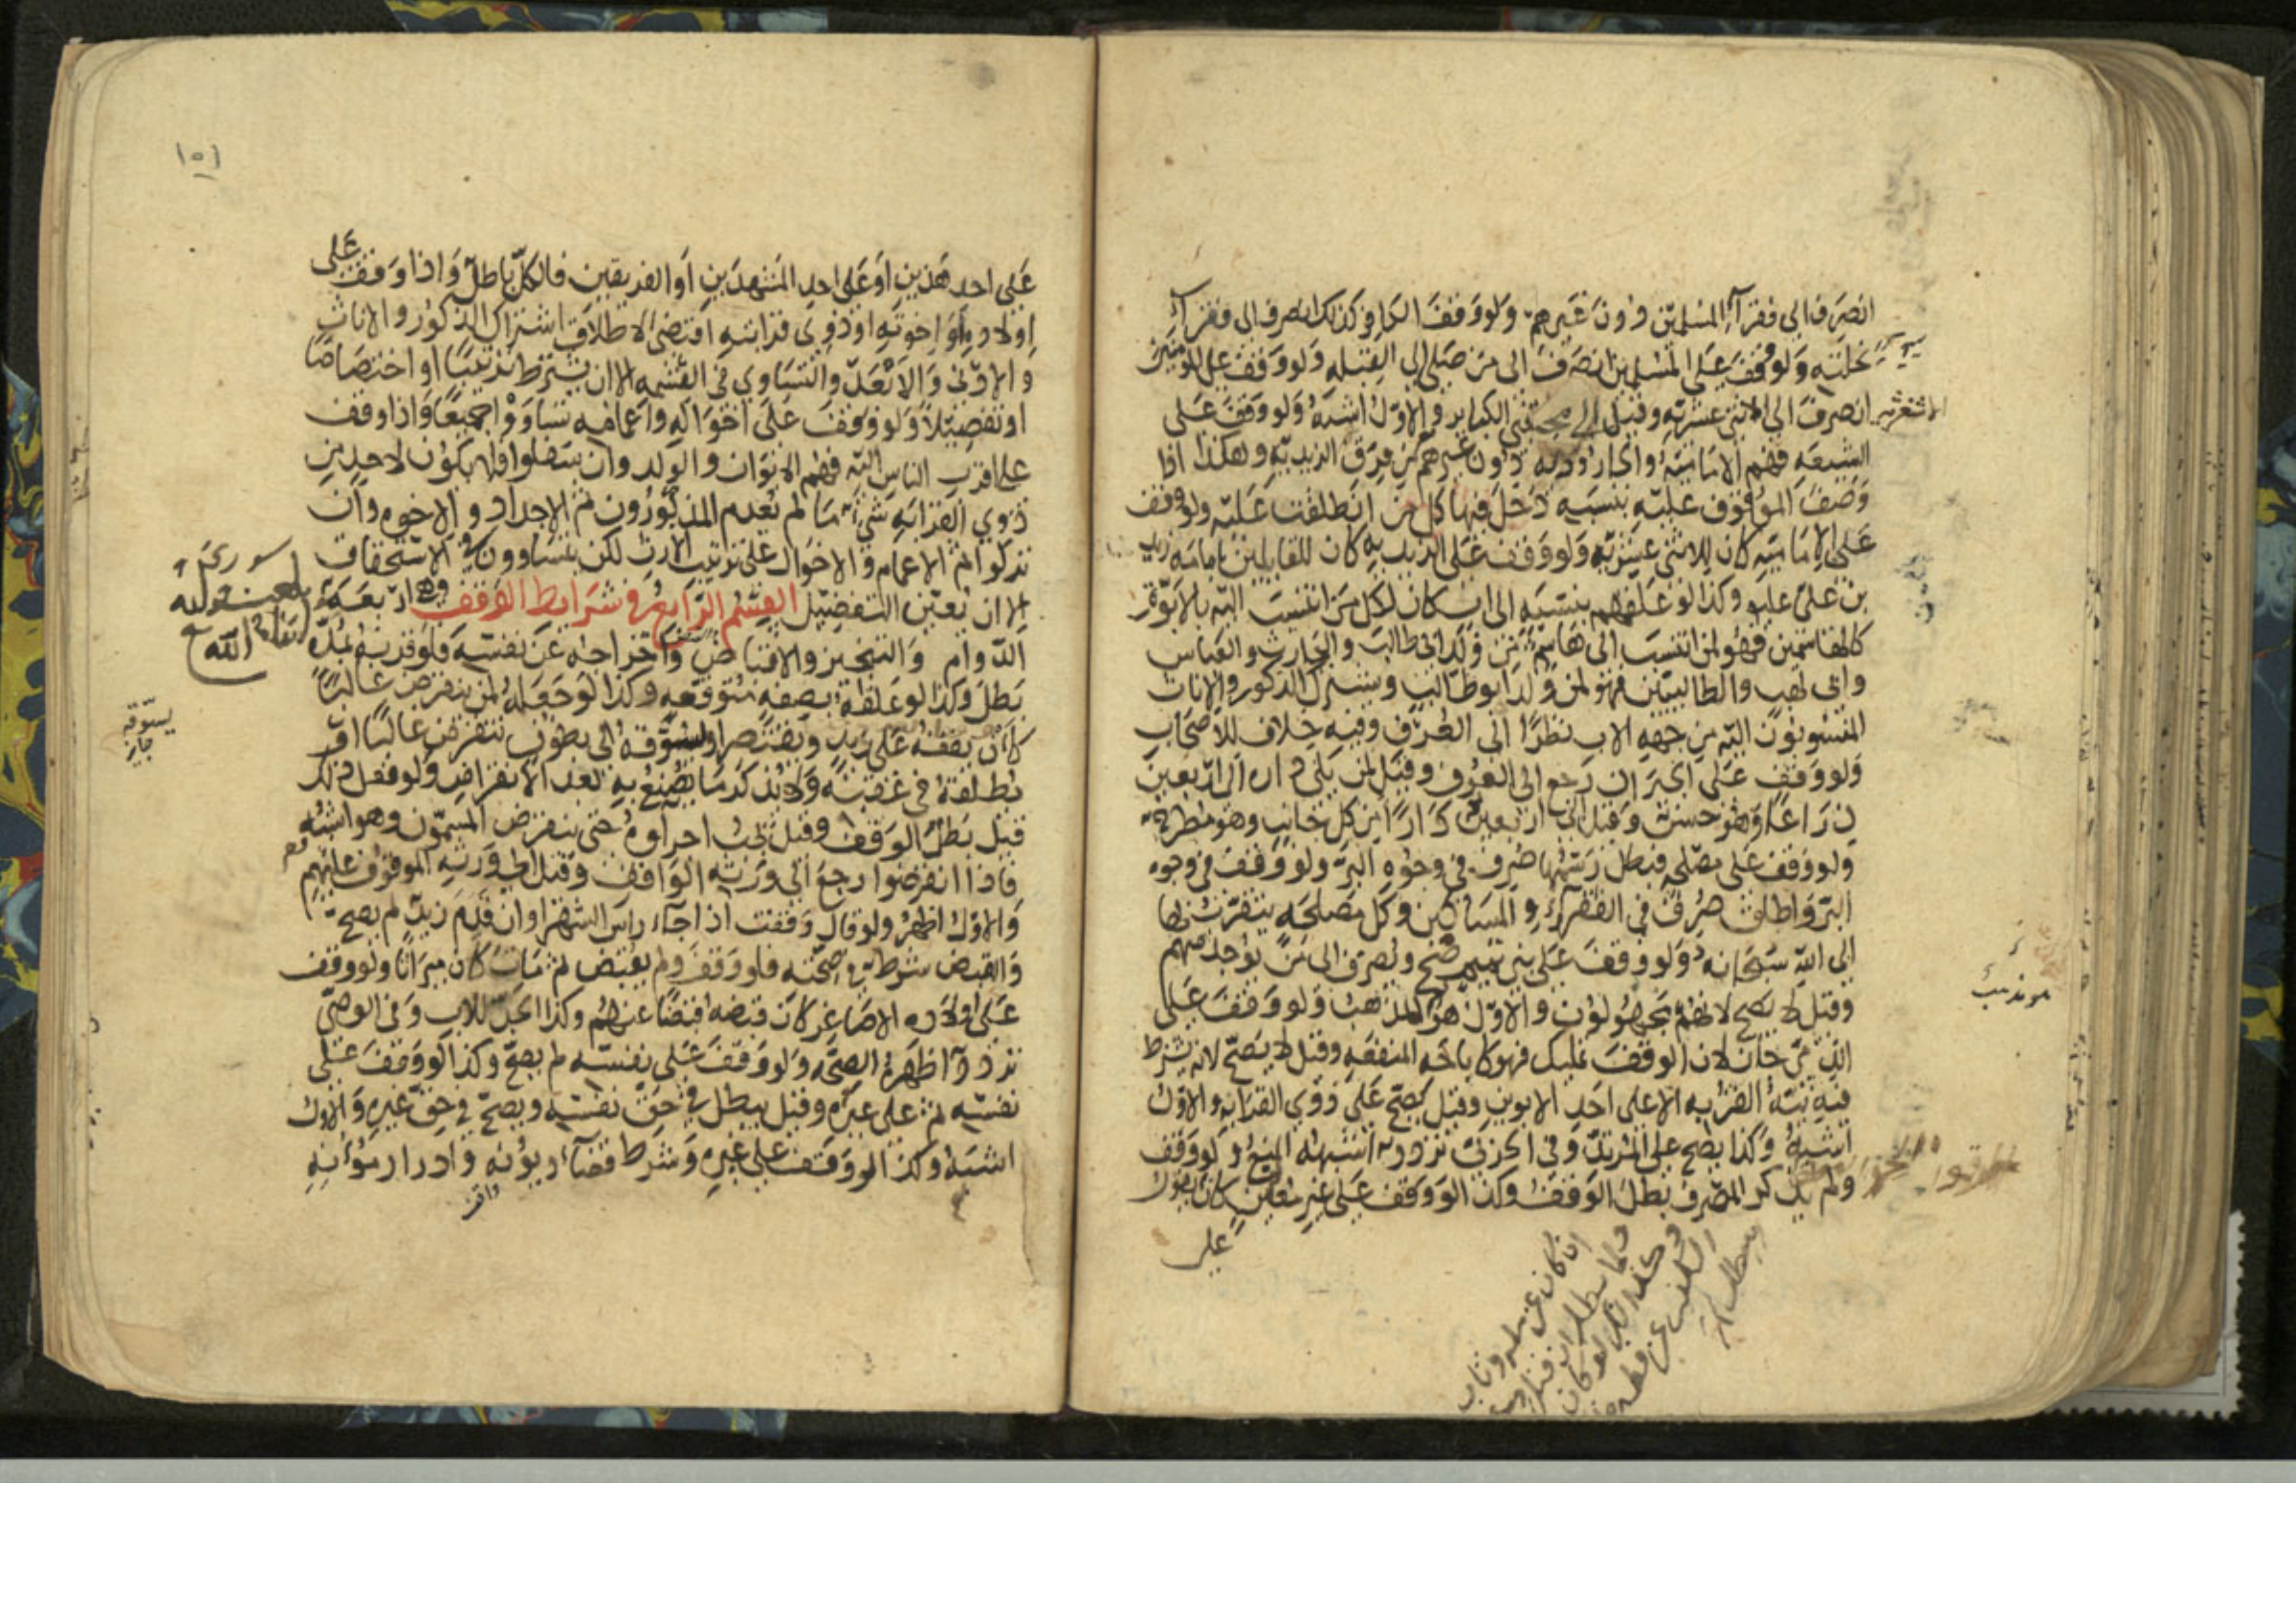 انصرف الى فقرآء المسلمين دون غيرهم ولو وقف الكافر كذلك انصرف الى فقرآء
نحلته ولو وقف على المسلمين انصرف الى من صلى الى القبله ولو وقف على المومنين
انصرف الى الاثنى عشرية وقيل الى مجتنبى الكباير والاول اشبه ولو وقف على
الشيعه فهم الامامية والجارودية دون غيرهم من فرق الزيدية وهكذا اذا
وصف الموقوف عليه بنسبه دخل فيها كل من انطلقت عليه ولو وقف
على الاماميه كان للاثنى عشرية ولو وقف على الزيديه كان للقايلين بامامه زيد
بن على عليه وكذا لو علقهم بنسبه الى اب كان لكل من انتسب اليه بالابوة
كالهاشميين فهو لمن انتسب الى هاشم من ولد ابى طالب والحارث والعباس
وابى لهب والطالبيين فهو لمن ولد ابو طالب ويشترك الذكور والاناث
المنسوبون اليه من جهه الاب نظرا الى العرف وفيه خلاف للاصحاب
ولو وقف على الجيران رجع الى العرف وقيل لمن يلى داره الى اربعين
ذراعا وهو حسن وقيل الى اربعين دارا من كل جانب وهو مطرح
ولو وقف على مصلحه فبطل رسمها صرف فى وجوه البر ولو وقف فى وجوه
البر واطلق صرف فى الفقرآء والمساكين وكل مصلحه يتقرب بها
الى الله سبحانه ولو وقف على بنى تميم صح ويصرف الى من يوجد منهم
وقيل لا يصح لانهم مجهولون والاول هو المذهب ولو وقف على
الذمى جاز لان الوقف تمليك فهو كاباحه المنفعه وقيل لا يصح لانه يشترط
فيه نية القربه الا على احد الابوين وقيل يصح على ذوى القرابه والاول
اشبه وكذا يصح على المرتد وفى الحربى تردد اشبهه المنع ولو وقف
ولم يذكر المصرف بطل الوقف وكذا لو وقف على غير معين كان يقول
على
١٥١
على احد هذين او على احد المشهدين او الفريقين فالكل باطل واذا وقف على
اولاده او اخوته او ذوى قرابته اقتضى الاطلاق اشتراك الذكور والاناث
والادنى والابعد والتساوى فى القسمه الا ان يشترط ترتيبا او اختصاصا
او تفضيلا ولو وقف على اخواله واعمامه تساووا جميعا واذا وقف
على اقرب الناس اليه فهم الابوان والولد وان سفلوا فلا يكون لاحد من
ذوي القرابه شىء ما لم يعدم المذكورون ثم الاجداد والاخوه وان
نزلوا ثم الاعمام والاخوال على ترتيب الارث لكن يتساوون فى الاستحقاق
الا ان يعين التفضيل القسم الرابع فى شرايط الوقف وهى اربعة
الدوام والتنجيز والاقباض واخراجه عن نفسه فلو قرنه بمدة
بطل وكذا لو علقه بصفه متوقعه وكذا لو جعله لمن ينقرض غالبا
كان يقفه على زيد ويقتصر او يسوقه الى بطون تنقرض غالبا او
يطلقه فى عقبه ولا يذكر ما يصنع به بعد الانقراض ولو فعل ذلك
قيل بطل الوقف وقيل يجب اجراوه حتى ينقرض المسمون وهو اشبه
فاذا انقرضوا رجع الى ورثه الواقف وقيل الى ورثه الموقوف عليهم
والاول اظهر ولو قال وقفت اذا جآء راس الشهر او ان قدم زيد لم يصح
والقبض شرط فى صحته فلو وقف ولم يقبض ثم مات كان ميراثا ولو وقف
على اولاده الاصاغر كان قبضه قبضا عنهم وكذا الجد للاب وفى الوصى
تردد اظهره الصحه ولو وقف على نفسه لم يصح وكذا لو وقف على
نفسه ثم على غيره وقيل يبطل فى حق نفسه ويصح فى حق غيره والاول
اشبه وكذا لو وقف على غيره وشرط قضآء ديونه او ادرار مؤنه